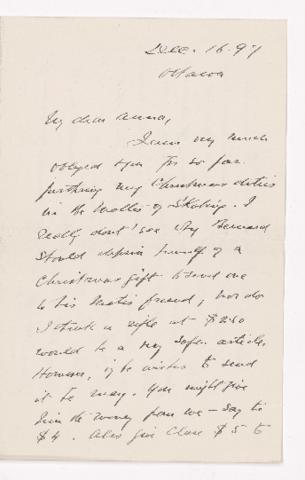 Dec. 16. 97
Ottawa
My dear Anna,
I am very much
obliged to you for so far
furthering my Christmas duties
in the matter of skating. I
really don't see why Bernard
should deprive himself of a
Christmas gift to send one
to his friend, nor do
I think a rifle at $2.50
would be a very safe article.
However, if he wishes to send
it he may. You might give
him the money from me – say the
$4. Also give Clare $5 to